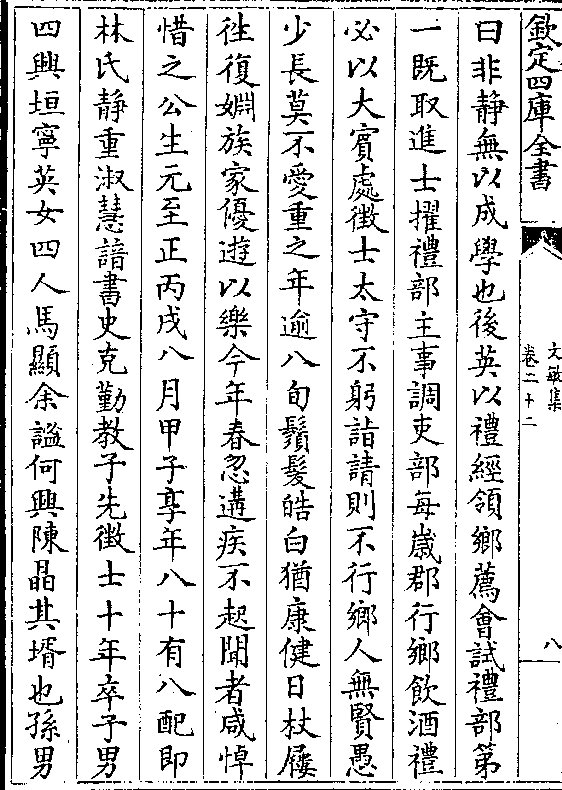 欽定四庫全書
文敏集
卷二十二
八
曰非静無以成學也後英以禮經領鄉薦會試禮部第
一既取進士擢禮部主事調吏部每歲郡行鄉飲酒禮
必以大賔處徴士太守不躬詣請則不行鄉人無賢愚
少長莫不愛重之年逾八旬鬚髮皓白猶康健日杖屨
徃復婣族家優遊以樂今年春忽遘疾不起聞者咸悼
惜之公生元至正丙戌八月甲子享年八十有八配即
林氏靜重淑慧諳書史克勤教子先徴士十年卒子男
四興垣寧英女四人馬顯余謚何興陳晶其壻也孫男